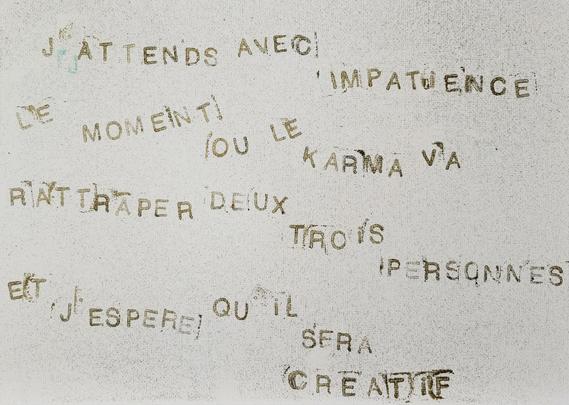 J'ATTENDS AVEC
IMPATIENCE
LE MOMENT
OU LE
KARMA VA
RATTRAPER DEUX
TROIS
PERSONNES
ET J'ESPERE QU'IL
SERA
CREATIF